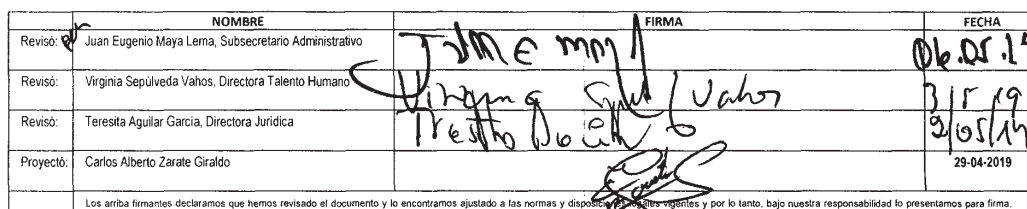 NOMBRE FIRMA FECHA
Revisó: Juan Eugenio Maya Lema, Subsecretario Administrativo 06.05.19
Revisó: Virginia Sepúlveda Vahos, Directora Talento Humano Vahos 3/5/19
Revisó: Teresita Aguilar García, Directora Jurídica
Proyectó: Carlos Alberto Zarate Giraldo 29-04-2019
Los arriba firmantes declaramos que hemos revisado el documento y lo encontramos ajustado a las normas y disposiciones legales vigentes y por lo tanto, bajo nuestra responsabilidad lo presentamos para firma.